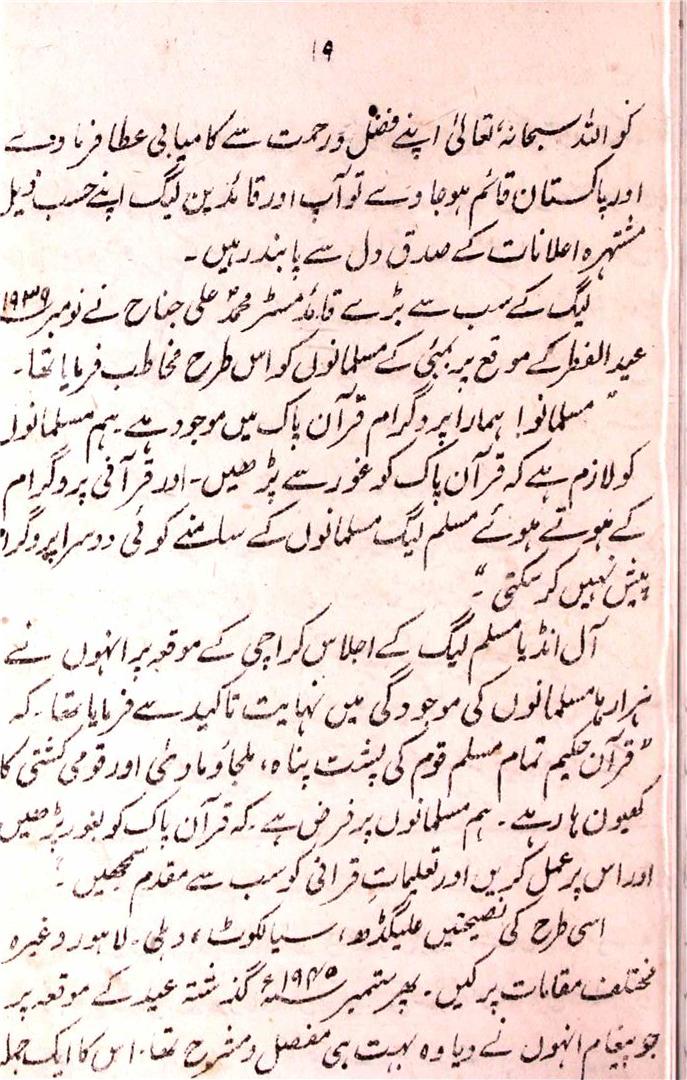 ۱۹
کو اللہ سبحانہٗ تعالیٰ اپنے فضل ورحمت سے کامیابی عطا فرماوے
اور پاکستان قائم ہوجاوے تو آپ اور قائدین لیگ اپنے حسب ذیل
مشتہرہ اعلانات کے صدق دل سے پابند رہیں۔
لیگ کے سب سے بڑے قائد مسٹر محمدؐ علی جناح نے نومبر ۱۹۳۹
عید الفطر کے موقع پر بمبئی کے مسلمانوں کو اس طرح مخاطب فرمایا تھا۔
"مسلمانو! ہمارا پروگرام قرآن پاک میں موجود ہے۔ ہم مسلمانوں
کو لازم ہے کہ قرآن پاک کو غور سے پڑھیں۔ اور قرآنی پروگرام
کے ہوتے ہوئے مسلم لیگ مسلمانوں کے سامنے کوئی دوسرا پروگرام
پیش نہیں کرسکتی"۔
آل انڈیا مسلم لیگ کے اجلاس کراچی کے موقعہ پر انہوں نے
ہزارہا مسلمانوں کی موجودگی میں نہایت تاکید سے فرمایا تھا۔ کہ
"قرآن حکیم تمام مسلم قوم کی پشت پناہ، ملجاو ماویٰ اور قومی کشتی کا
کھیون ہار ہے۔ ہم مسلمانوں پر فرض ہے۔ کہ قرآن پاک کو بغور پڑھیں
اور اس پر عمل کریں اور تعلیمات قرانی کو سب سے مقدم سمجھیں"۔
اسی طرح کی نصیحتیں علیگڈھ، سیالکوٹ، دہلی۔ لاہور وغیرہ
مختلف مقامات پر کیں۔ پھر ستمبر ۱۹۴۵ء گذشتہ عید کے موقعہ پر
جو پیغام انہوں نے دیا وہ بہت ہی مفصل و مشرح تھا۔ اس کا ایک جملہ